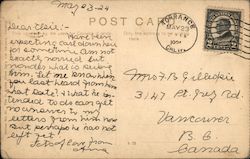 May 23-24
POST CARD
Dear Elsie:-
Have been
expecting card down here
for sometime. Am not
exactly worried but
wonder what is
from. Let me know when
you last heard from him
what Date? & what he in
tended to do can get
no answer to my
letters from him now
but perhaps he has not
left yet
Lots of Love from
TORRANCE
MAY 23
1924
CALIF.
Mrs F. B. Gillespie
3147 Pt. Grey Rd.
Vancouver
B. C.
Canada